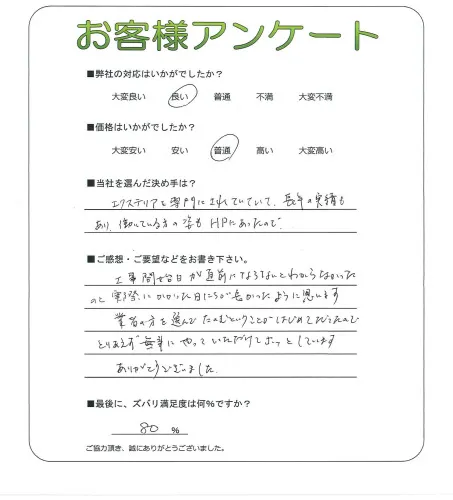 お客様アンケート
■弊社の対応はいかがでしたか？
大変良い 良い 普通 不満 大変不満
■価格はいかがでしたか？
大変安い 安い 普通 高い 大変高い
■当社を選んだ決め手は？
エクステリアを専門にされていていて、長年の実績も
あり、働いている方の姿も HPにあったので
■ご感想・ご要望などをお書き下さい。
工事開始日が直前にならないとわからなかった
のと実際にかかった日にちが長かったように思います
業者の方を選んでたのむということがはじめてだったので
とりあえず無事にやっていただけてホッとしています
ありがとうございました.
■最後に、ズバリ満足度は何%ですか？
80 %
ご協力頂き、誠にありがとうございました。